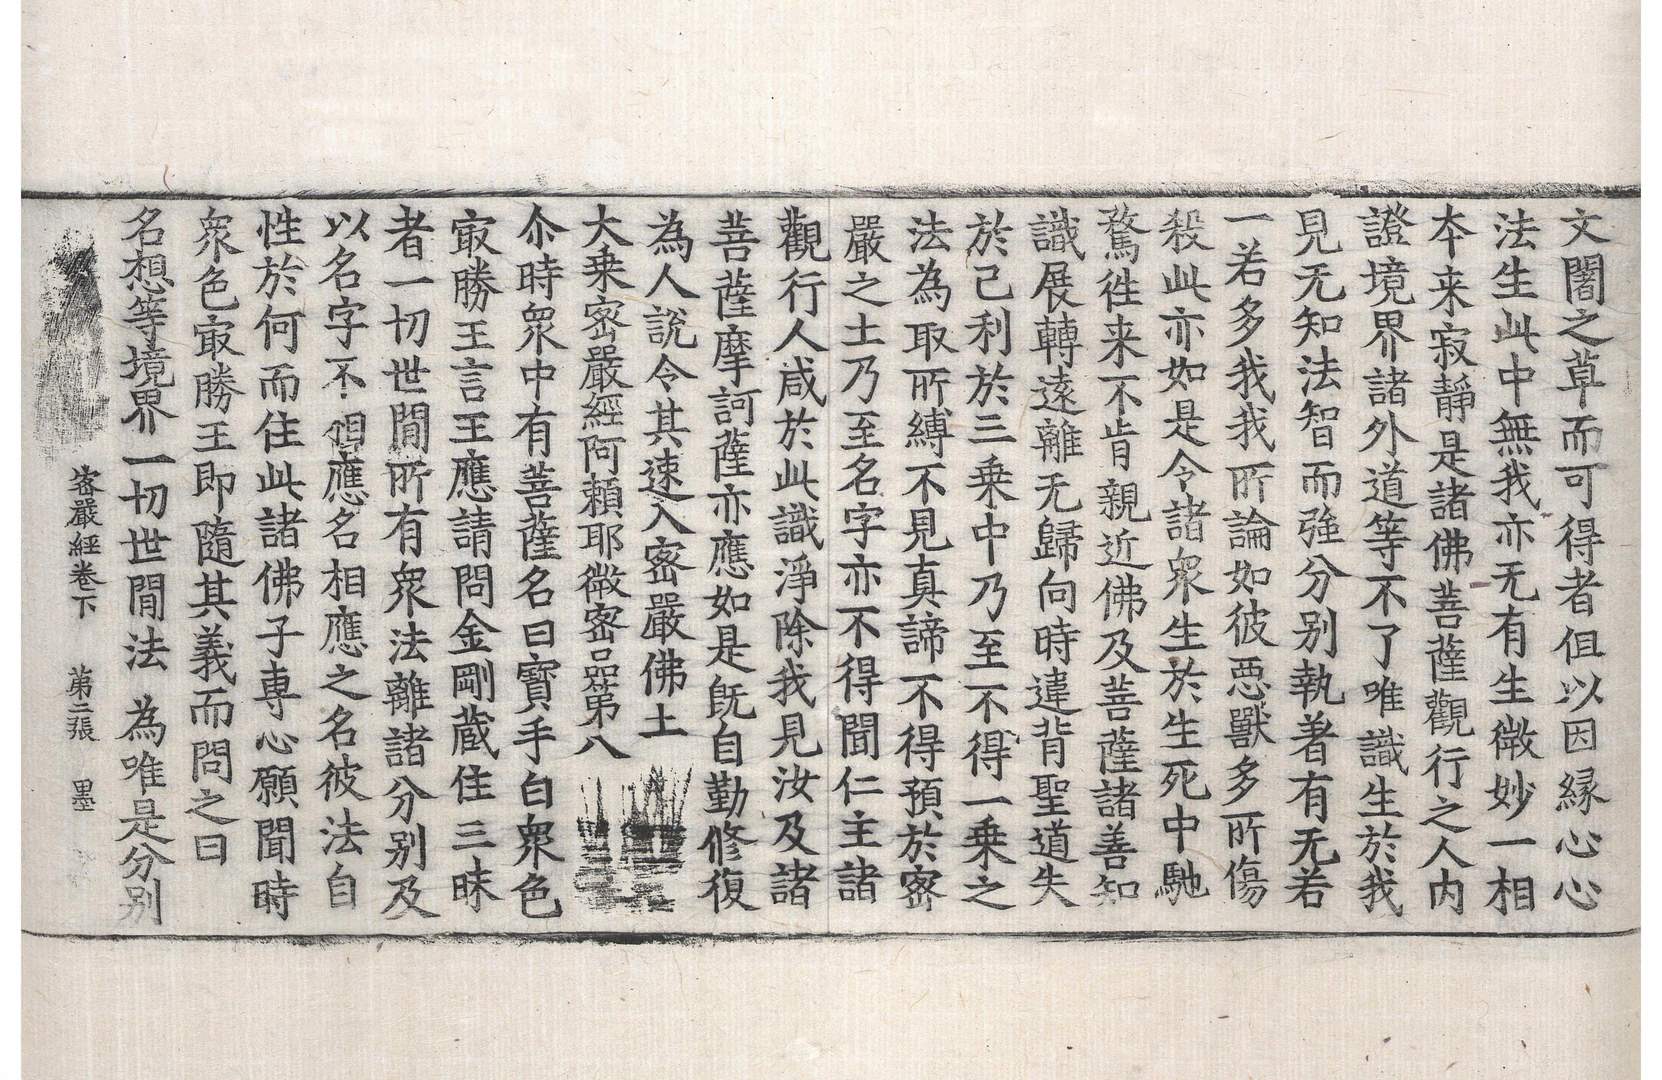 文闍之草而可得者但以因縁心心
法生此中無我亦无有生微妙一相
本来寂靜是諸佛菩薩觀行之人内
證境界諸外道等不了唯識生於我
見无知法智而強分別執著有无若
一若多我我所論如彼惡獸多所傷
殺此亦如是令諸衆生於生死中馳
騖徃来不肯親近佛及菩薩諸善知
識展轉遠離无歸向時違背聖道失
於己利於三乗中乃至不得一乗之
法為取所縛不見真諦不得預於密
嚴之土乃至名字亦不得聞仁主諸
觀行人咸於此識淨除我見汝及諸
菩薩摩訶薩亦應如是旣自勤修復
為人說令其速入密嚴佛土
大乗密嚴經阿頼耶微密品第八
尒時衆中有菩薩名曰寳手白衆色
㝡勝王言王應請問金剛蔵住三昧
者一切世間所有衆法離諸分別及
以名字不相應名相應之名彼法自
性於何而住此諸佛子專心願聞時
衆色㝡勝王即隨其義而問之曰
名想等境界一切世間法 為唯是分別
密嚴經卷下 第二張 墨